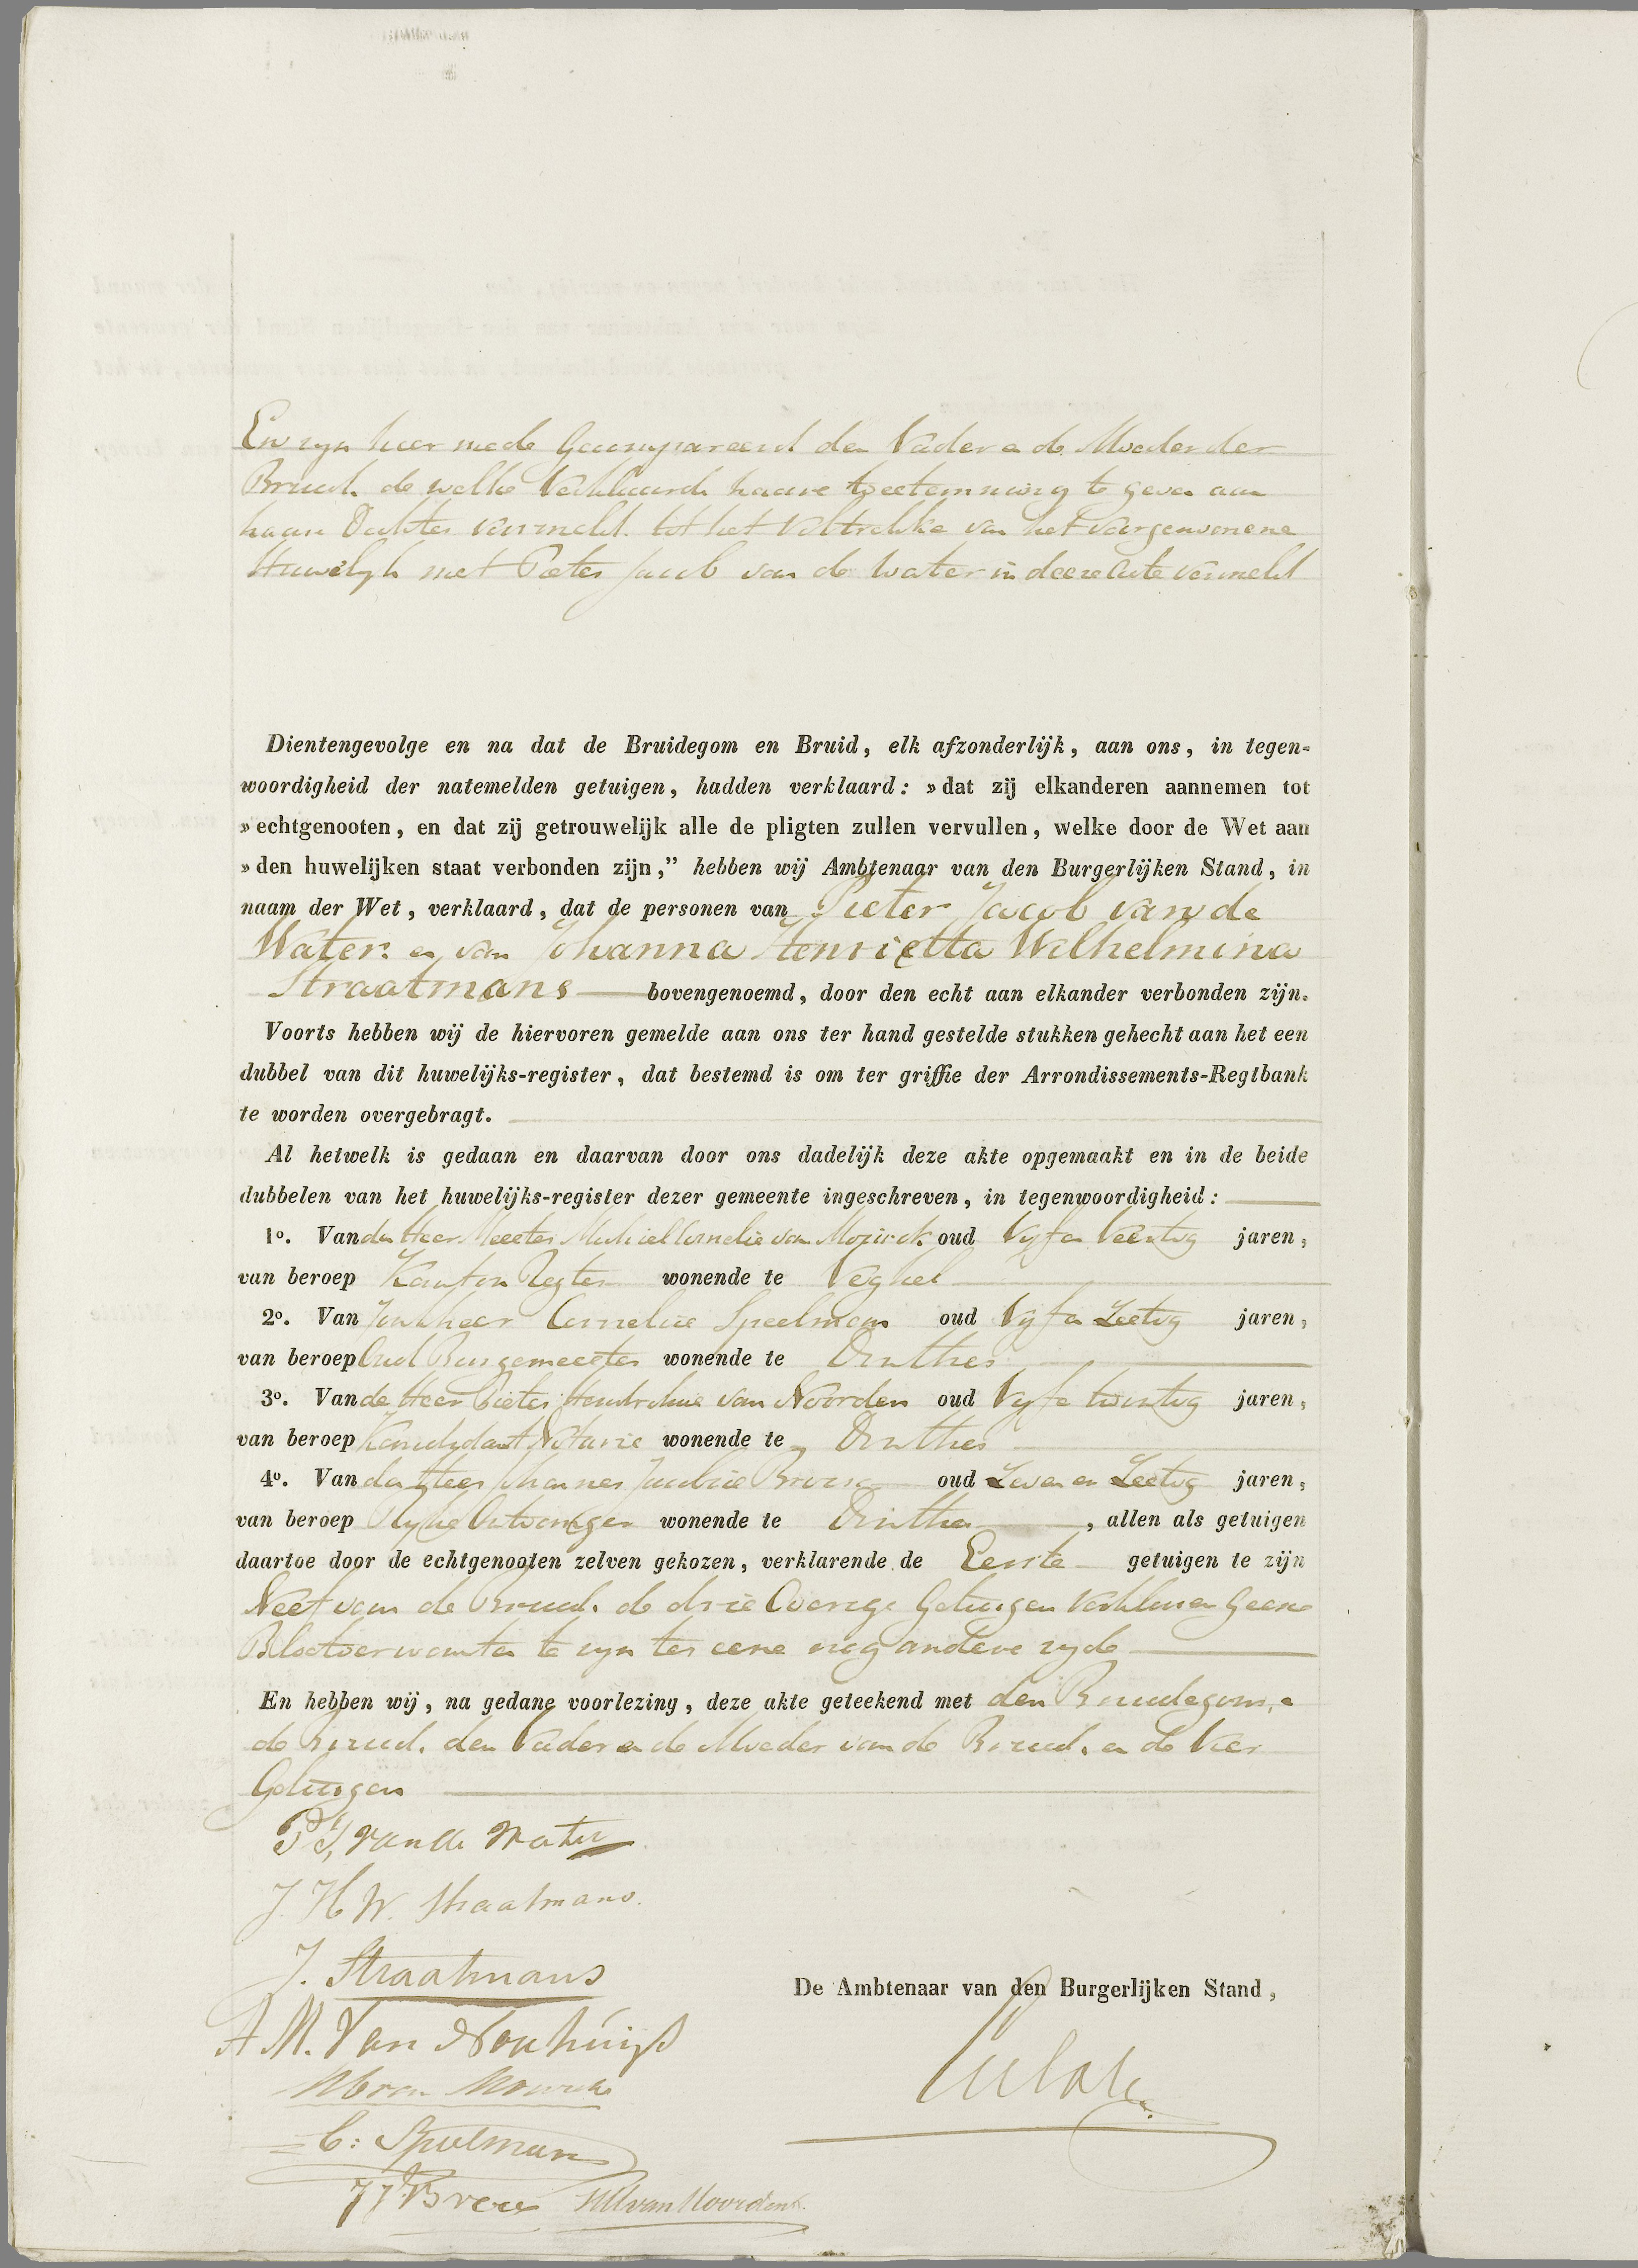 En zyn hier mede Gecompareerd den Vader en de Moeder der
Bruid. de welke Verklaarde haare toestemming te geven aan
haare Dochter vermeld. tot het Voltrekke van het voorgenomene
Huwelyk met Pieter Jacob van de Water in deeze Acte vermeld
Dientengevolge en na dat de Bruidegom en Bruid, elk afzonderlijk, aan ons, in tegen-
woordigheid der natemelden getuigen, hadden verklaard: »dat zij elkanderen aannemen tot
»echtgenooten, en dat zij getrouwelijk alle de pligten zullen vervullen, welke door de Wet aan
»den huwelijken staat verbonden zijn,” hebben wij Ambtenaar van den Burgerlijken Stand, in
naam der Wet, verklaard, dat de personen van Pieter Jacob van de
Water. en van Johanna Henrietta Wilhelmina
Straatmans bovengenoemd, door den echt aan elkander verbonden zijn.
Voorts hebben wij de hiervoren gemelde aan ons ter hand gestelde stukken gehecht aan het een
dubbel van dit huwelijks-register, dat bestemd is om ter griffie der Arrondissements-Regtbank
te worden overgebragt.
Al hetwelk is gedaan en daarvan door ons dadelijk deze akte opgemaakt en in de beide
dubbelen van het huwelijks-register dezer gemeente ingeschreven, in tegenwoordigheid:
1o. Van den Heer Meester Michiel Cornelis van oud Vyf en Veertig jaren,
van beroep Kanton Regter wonende te Veghel
2o. Van Jonkheer Cornelis Speelman oud Vyf en Zestig jaren,
van beroep Oud Burgemeester wonende te Dinther
3o. Van de Heer Pieter Hendrikus van Noorden oud Vyf en twintig jaren,
van beroep Kandydaat Notaris wonende te Dinther
4o. Van den Heer Johannes Jacobus oud Zeven en Zestig jaren,
van beroep Ryks Ontvanger wonende te Dinther, allen als getuigen
daartoe door de echtgenooten zelven gekozen, verklarende de Eerste getuigen te zijn
Neef van de Bruid. de drie Overige Getuigen verklaren geene
Bloetverwanten te zyn ter eene nog andere zyde
En hebben wij, na gedane voorlezing, deze akte geteekend met den Bruidegom, en
de Bruid. den Vader en de Moeder van de Bruid. en de Vier
Getuigen
P J, van de Water
J. H W. Straatmans.
J. Straatmans
De Ambtenaar van den Burgerlijken Stand,
A M. Van Nouhuijs
C: Speelman
van Noorden